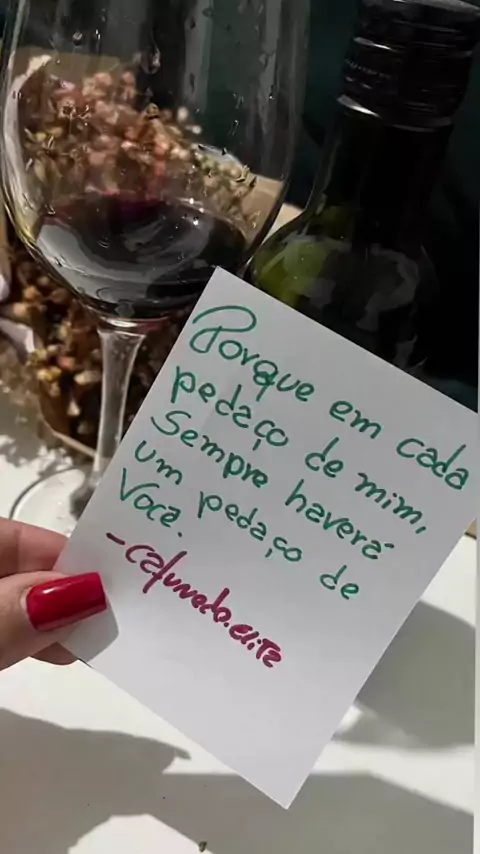 Porque em cada
pedaço de mim,
Sempre haverá
um pedaço de
Você.
-cafunedo.elite